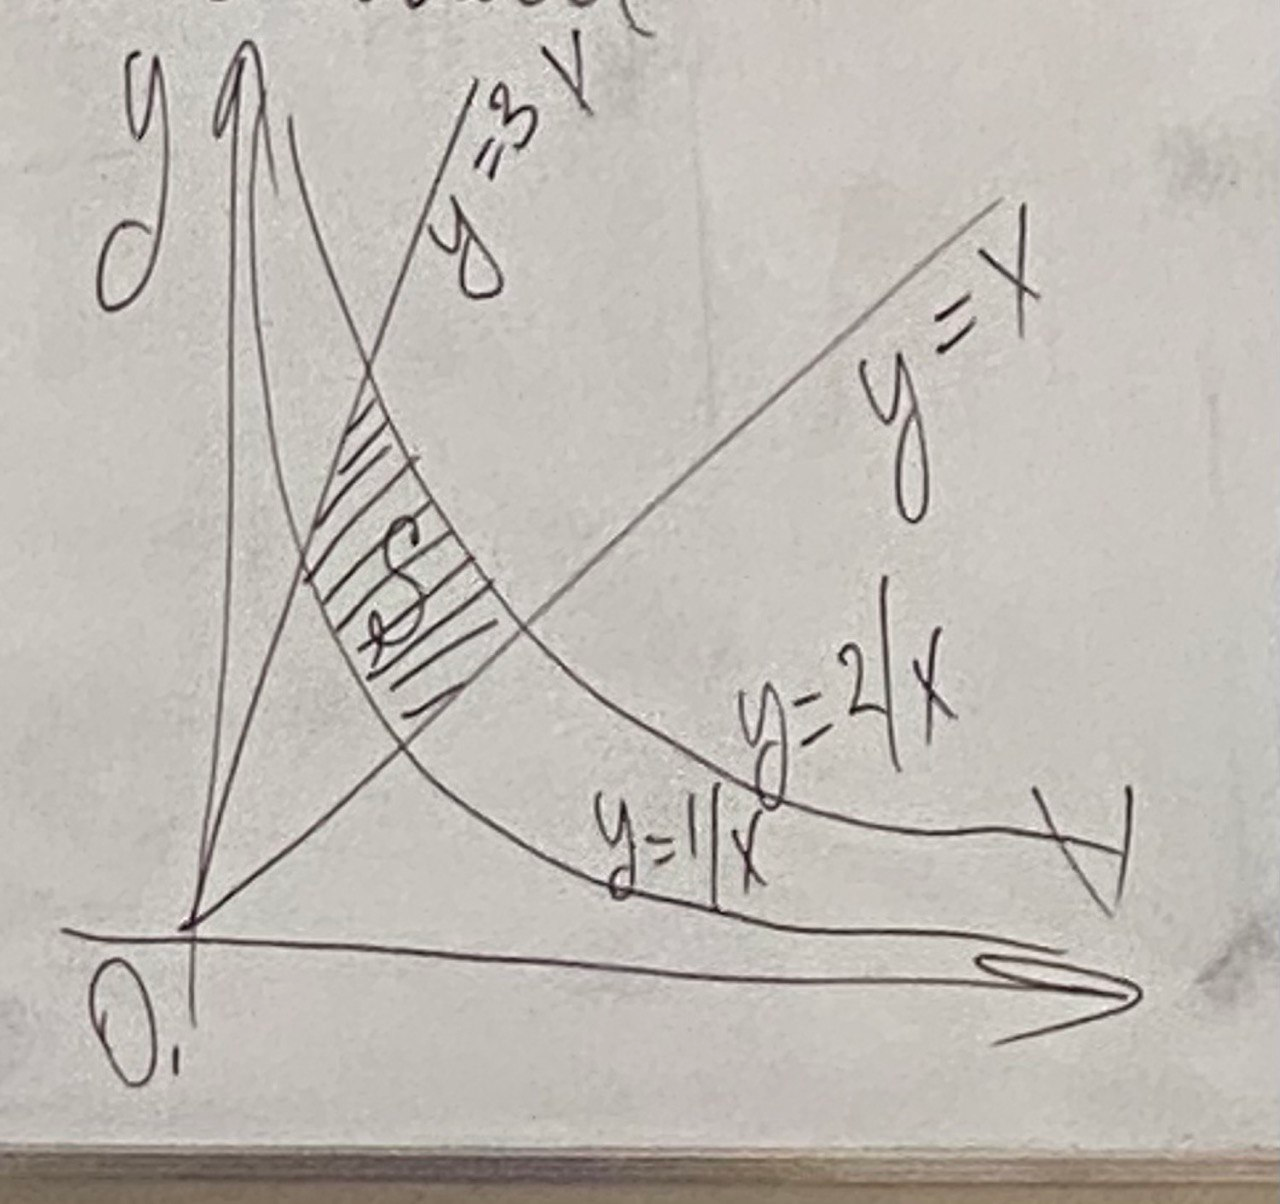 y
y=3x
y=x
S
y=2/x
y=1/x
x
0.